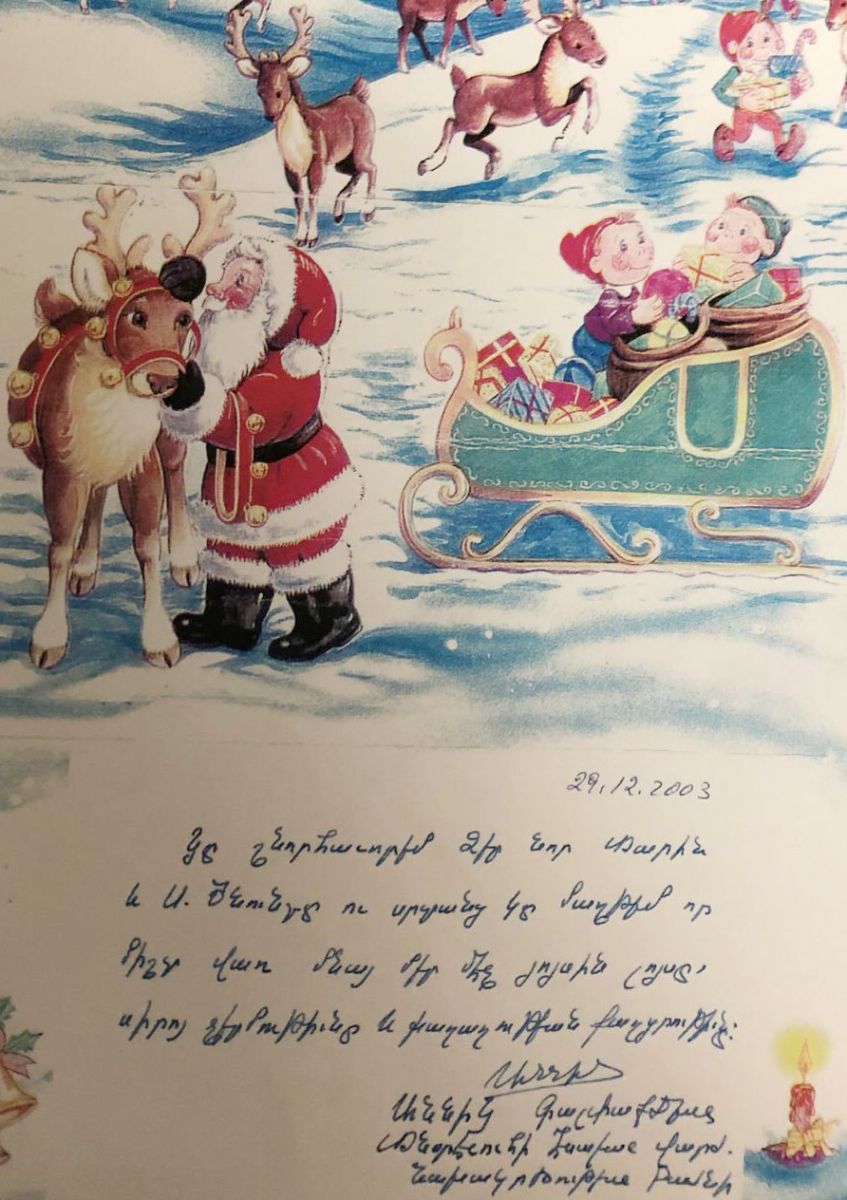 29.12.2003
Կը շնորհաւորեմ Ձեր նոր Տարին
և Ս. Ծնունդը ու սրտանց կը մաղթեմ որ
միշտ վառ մնայ մեր մէջ յոյսին լոյսը՝
սիրոյ ջերմութիւնը և խաղաղութեան քաղցրութիւնը:
Աննիկ